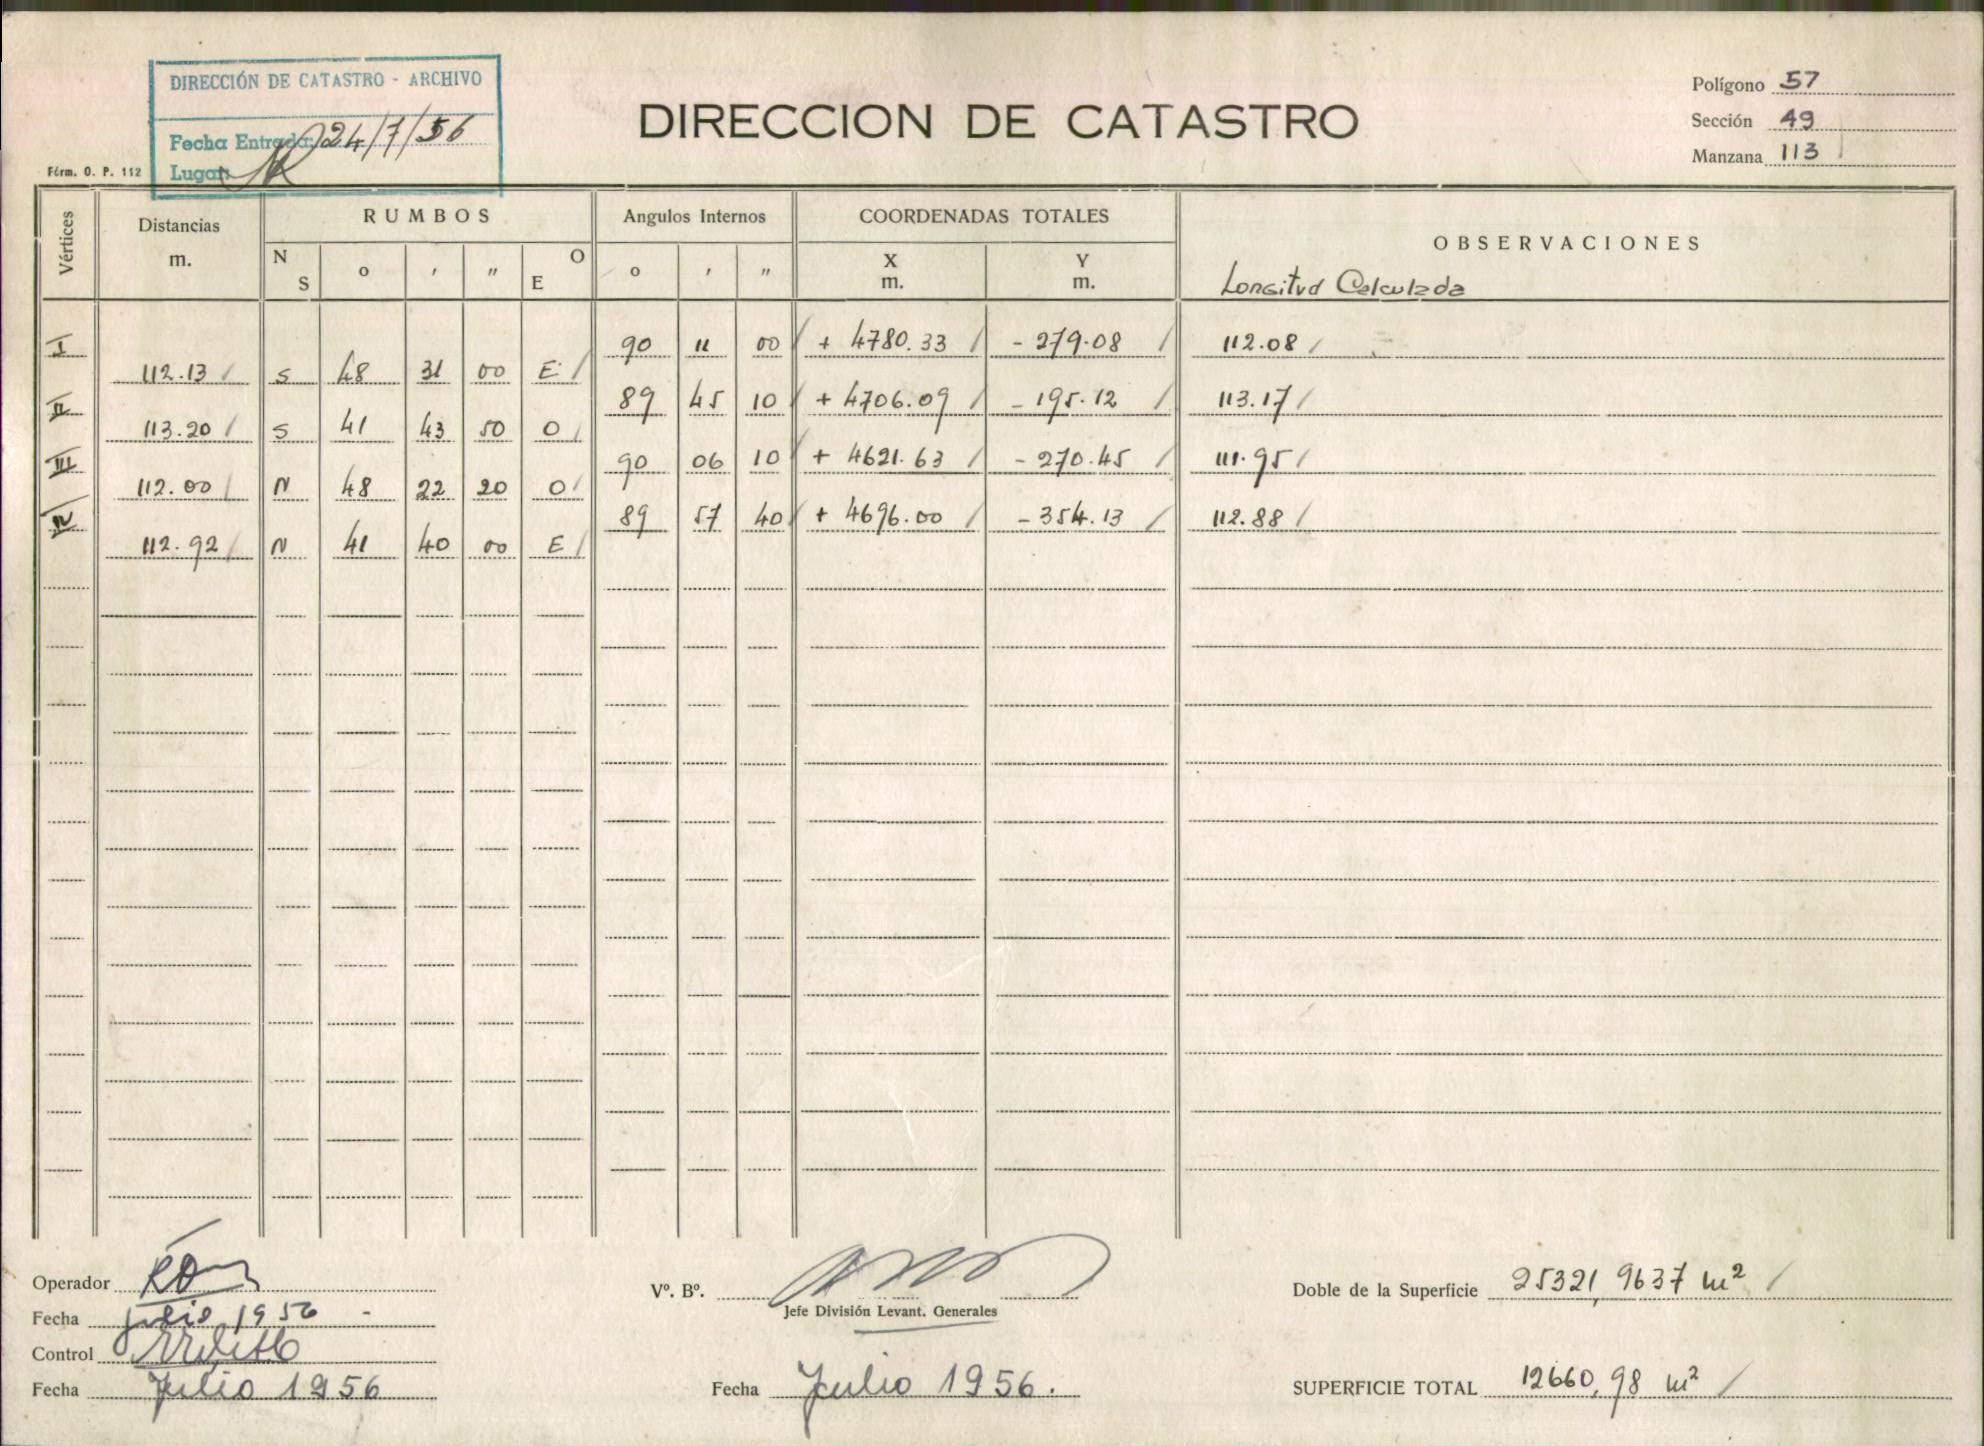 DIRECCIÓN DE CATASTRO - ARCHIVO
Fecha Entrada: 24/7/56
Lugar:
Fórm. O. P. 112
DIRECCION DE CATASTRO
Polígono 57
Sección 49
Manzana 113
Vértices Distancias m. RUMBOS Angulos Internos COORDENADAS TOTALES OBSERVACIONES
N S o ' " O E o ' " X m. Y m. Longitud Calculada
I 90 11 00 + 4780.33 - 279.08 112.08
112.13 S 48 31 00 E
II 89 45 10 + 4706.09 - 195.12 113.17
113.20 S 41 43 50 O
III 90 06 10 + 4621.63 - 270.45 111.95
112.00 N 48 22 20 O
IV 89 57 40 + 4696.00 - 354.13 112.88
112.92 N 41 40 00 E
Operador
Fecha julio 1956
Control
Fecha Julio 1956
Vº. Bº.
Jefe División Levant. Generales
Fecha Julio 1956.
Doble de la Superficie 25321,9637 m²
SUPERFICIE TOTAL 12660,98 m²